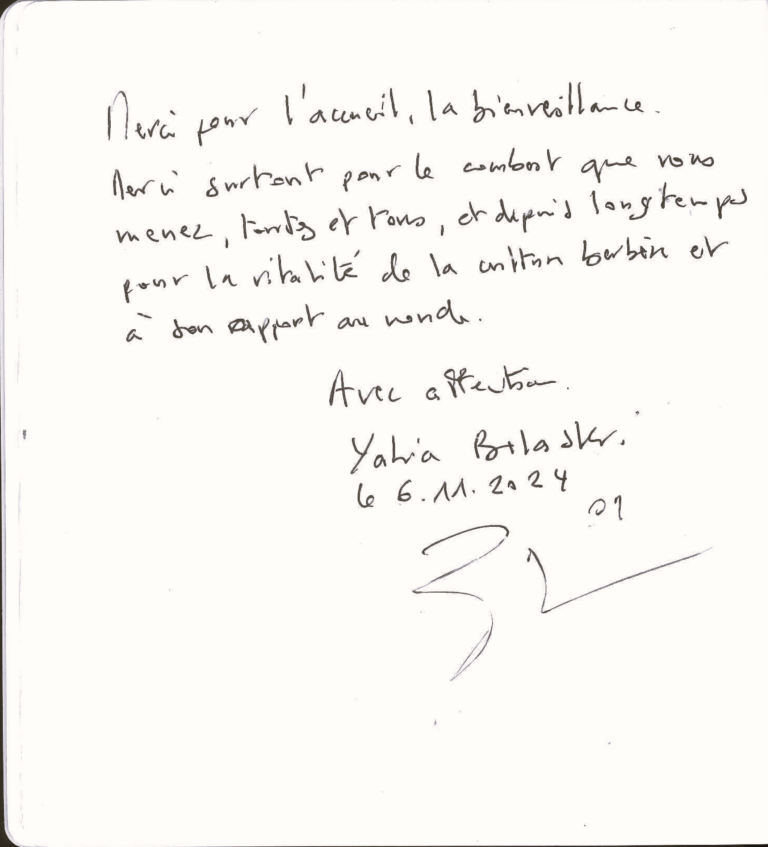 Merci pour l'accueil, la bienveillance.
Merci surtout pour le combat que vous
menez, toutes et tous, et depuis longtemps
pour la vitalité de la culture berbère et
à son rapport au monde.
Avec affection.
Yahia Belaskri
le 6.11.2024